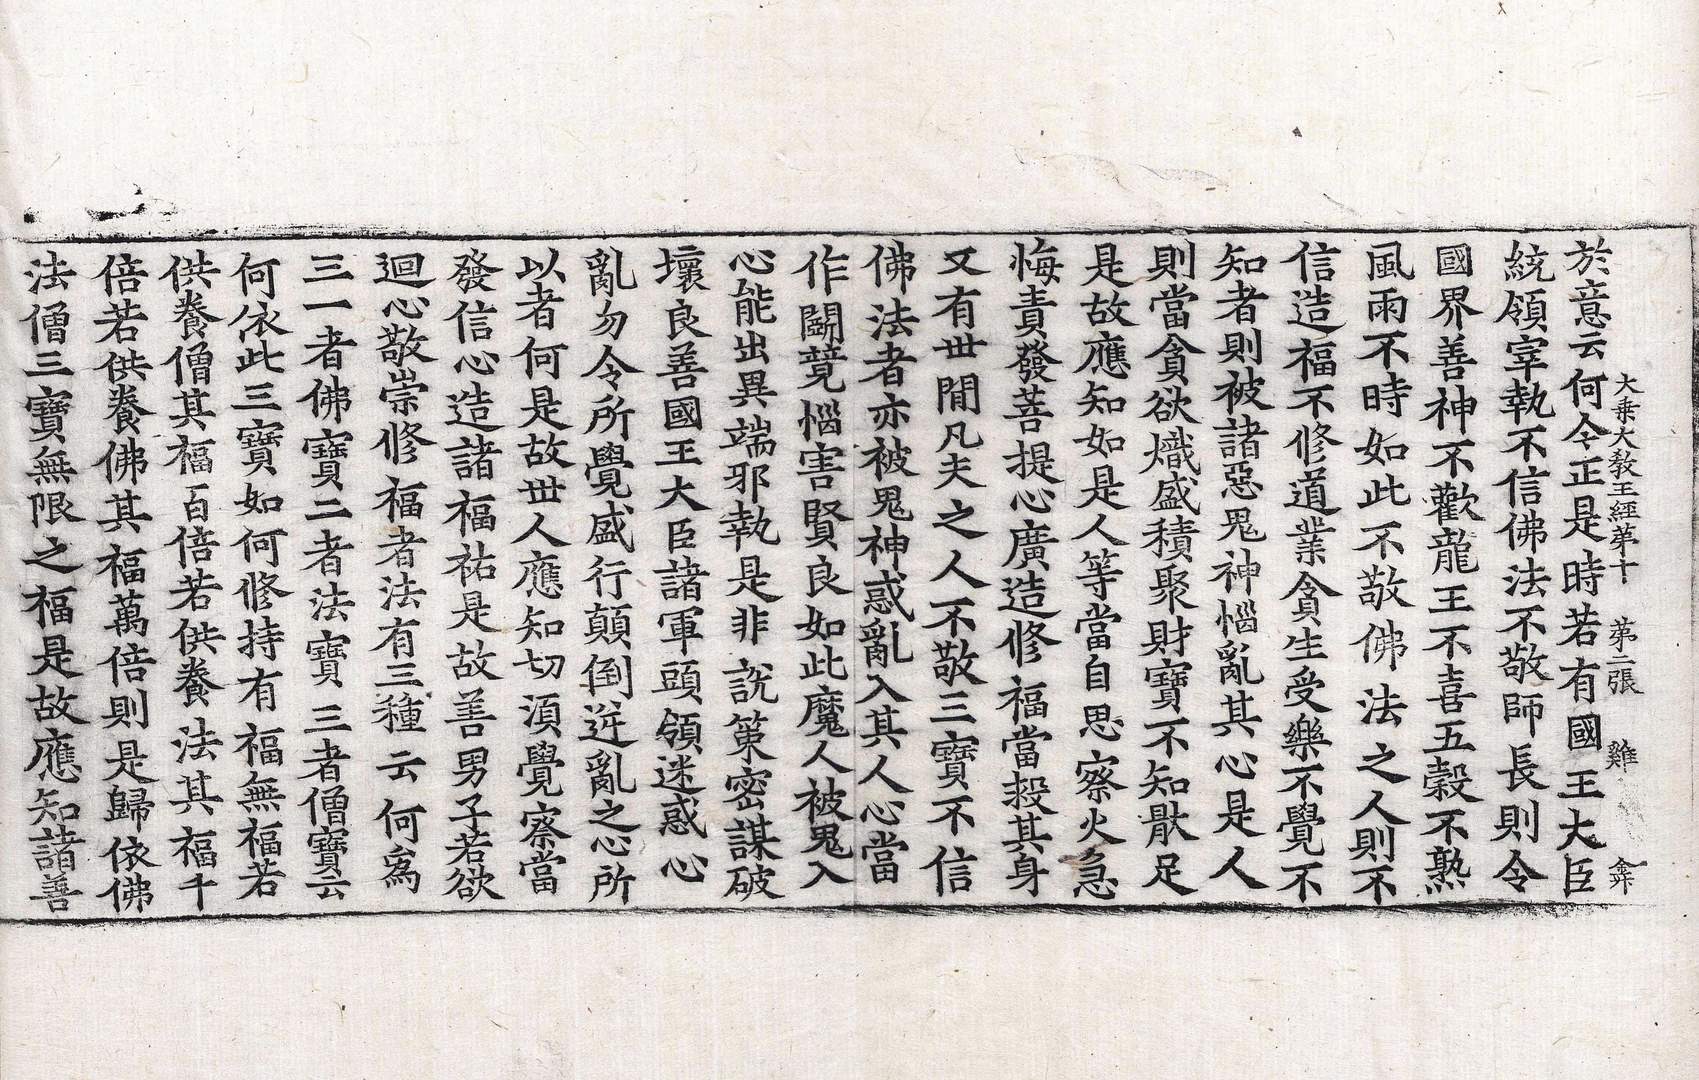 大乗大教王經第十　第二張　雞　弇
於意云何令正是時若有國王大臣
統領宰執不信佛法不敬師長則令
國界善神不歡龍王不喜五穀不熟
風雨不時如此不敬佛法之人則不
信造福不修道業貪生受樂不覺不
知者則被諸惡鬼神惱亂其心是人
則當貪欲熾盛積聚財寶不知猒足
是故應知如是人等當自思察火急
悔責發菩提心廣造修福當投其身
又有世閒凡夫之人不敬三寶不信
佛法者亦被鬼神惑亂入其人心當
作鬪競惱害賢良如此魔人被鬼入
心能出異端邪執是非說策密謀破
壞良善國王大臣諸軍頭領迷惑心
亂勿令所覺盛行顛倒逆亂之心所
以者何是故世人應知切湏覺察當
發信心造諸福祐是故善男子若欲
迴心敬崇修福者法有三種云何爲
三一者佛寶二者法寶三者僧寶云
何依此三寶如何修持有福無福若
供養僧其福百倍若供養法其福千
倍若供養佛其福萬倍則是歸依佛
法僧三寶無限之福是故應知諸善